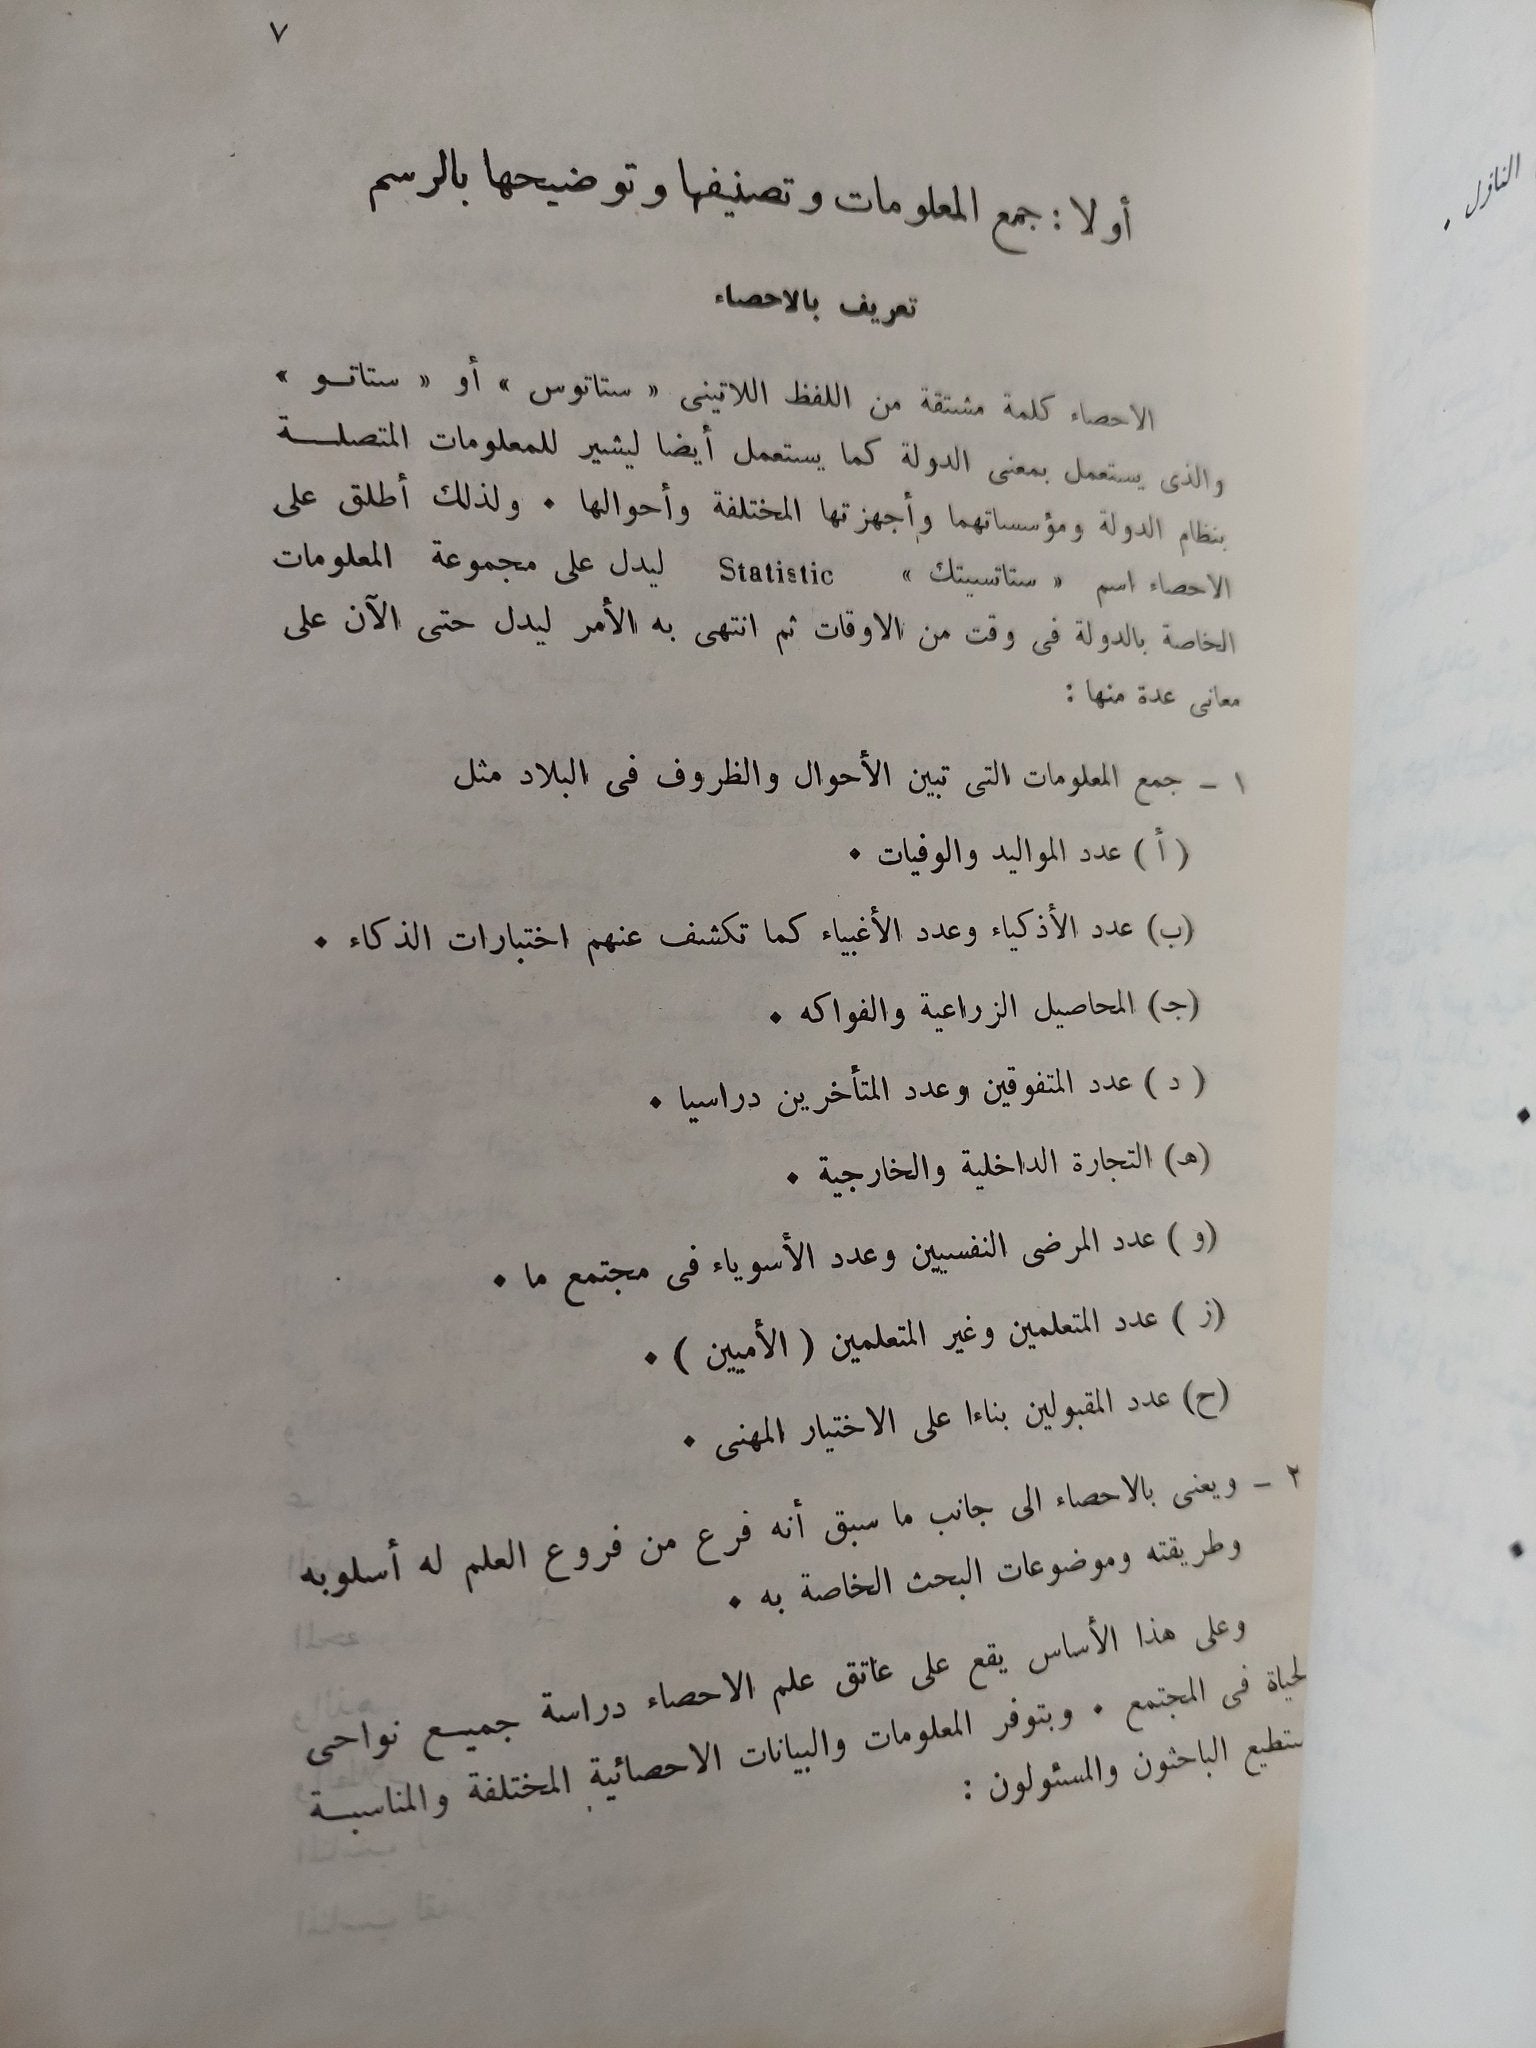 ٧
أولا : جمع المعلومات وتصنيفها وتوضيحها بالرسم
تعريف بالاحصاء
الاحصاء كلمة مشتقة من اللفظ اللاتينى « ستاتوس » أو « ستاتـو »
والذى يستعمل بمعنى الدولة كما يستعمل أيضا ليشير للمعلومات المتصلـــة
بنظام الدولة ومؤسساتهما وأجهزتها المختلفة وأحوالها • ولذلك أطلق على
الاحصاء اسم « ستاتسيتك » Statistic ليدل على مجموعة المعلومات
الخاصة بالدولة فى وقت من الاوقات ثم انتهى به الأمر ليدل حتى الآن على
معانى عدة منها :
١ ـ جمع المعلومات التى تبين الأحوال والظروف فى البلاد مثل
( أ ) عدد المواليد والوفيات •
(ب) عدد الأذكياء وعدد الأغبياء كما تكشف عنهم اختبارات الذكاء •
(جـ) المحاصيل الزراعية والفواكه •
( د ) عدد المتفوقين وعدد المتأخرين دراسيا •
(هـ) التجارة الداخلية والخارجية •
(و ) عدد المرضى النفسيين وعدد الأسوياء فى مجتمع ما •
(ز ) عدد المتعلمين وغير المتعلمين ( الأميين ) •
(ح) عدد المقبولين بناءا على الاختيار المهنى •
٢ ـ ويعنى بالاحصاء الى جانب ما سبق أنه فرع من فروع العلم له أسلوبه
وطريقته وموضوعات البحث الخاصة به •
وعلى هذا الأساس يقع على عاتق علم الاحصاء دراسة جميـع نواحى
لحياة فى المجتمع • وبتوفر المعلومات والبيانات الاحصائية المختلفة والمناسبـة
ستطيع الباحثون والمسئولون :